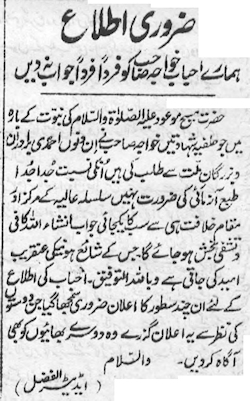 ضروری اطلاع
ہمارے احباب خواجہ صاحب کو فرداً فرداً جواب نہ دیں
حضرت مسیح موعود علیہ الصلوٰۃ والسلام کی نبوت کے بارہ
میں جو حلفیہ شہادتیں خواجہ صاحب نے ان دنوں احمدی برادران
و بزرگان ملت سے طلب کی ہیں انکی نسبت جدا جدا
طبع آزمائی کی ضرورت نہیں سلسلہ عالیہ کے مرکز اور
مقام خلافت ہی سے سب کا یکجائی جواب انشاء اللہ کافی
و تشفی بخش ہو جائے گا جس کے شائع ہونیکی عنقریب
امید کی جاتی ہے وباللہ التوفیق۔ احباب کی اطلاع
کے لئے ان چند سطور کا اعلان ضروری سمجھا گیا جس دوست
کی نظر سے یہ اعلان گزرے وہ دوسرے بھائیوں کو بھی
آگاہ کر دیں۔ والسلام
(ایڈیٹر الفضل)